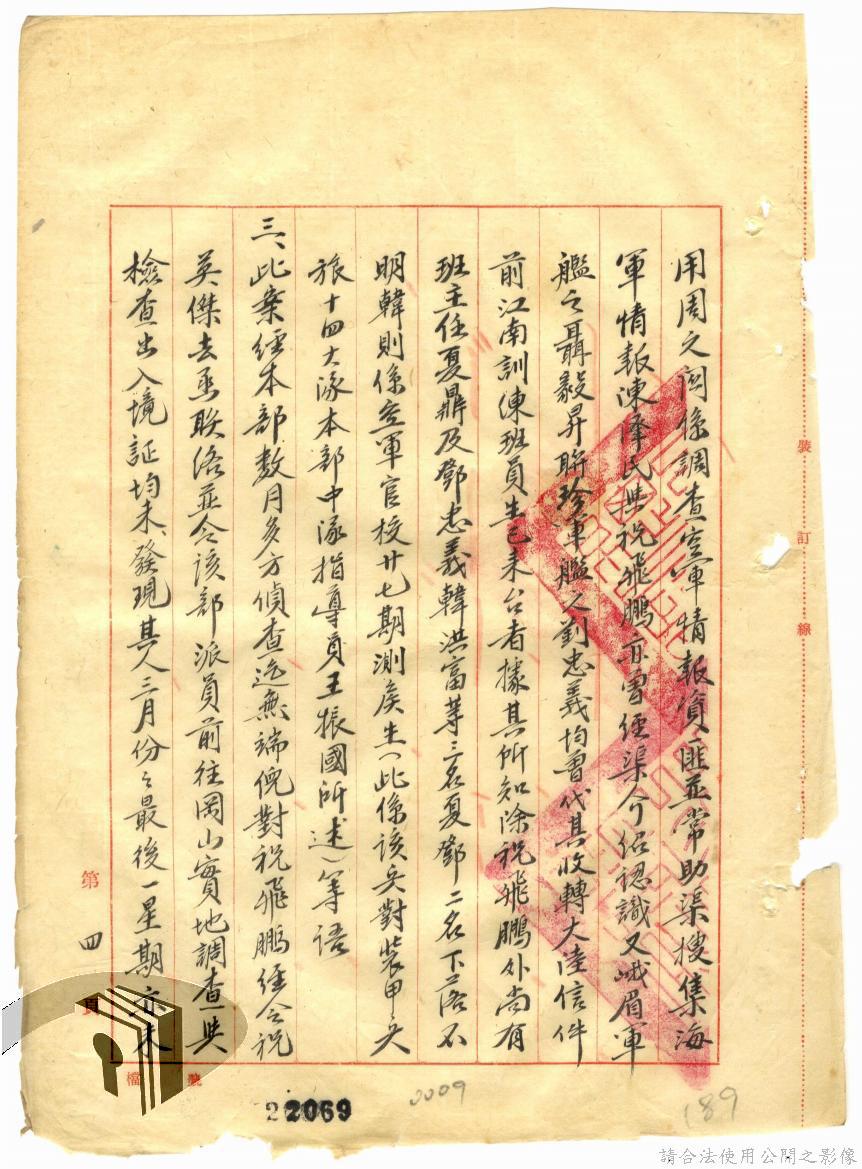 用周之関係調查空軍情報資匪並常助渠搜集海
軍情報陳澤民與祝飛鵬亦曾經渠介紹認識又峨眉軍
艦之聶毅昇聯珍軍艦人劉忠義均曾代其收轉大陸信件
前江南訓練班員生已來台者據其所知除祝飛鵬外尚有
班主任夏鼎及鄧忠義韓洪富等三名夏鄧二名下落不
明韓則係空軍官校廿七期測候生(此係該兵對裝甲兵
旅十四大隊本部中隊指導員王振國所述)等語
三、此案經本部數月多方偵查迄無端倪對祝飛鵬經令祝
英傑去函聯絡並令該部派員前往岡山實地調查與
檢查出入境証均未發現其人三月份之最後一星期亦未
裝訂線
第四頁
檔號
22069
0009
189
請合法使用公開之影像